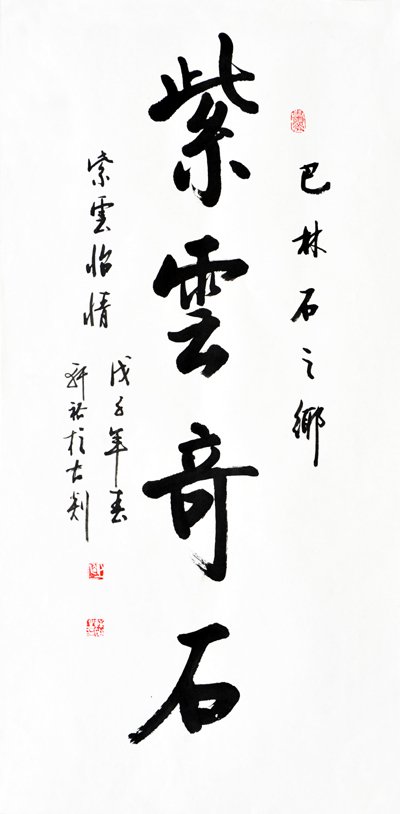 巴林石之鄉
紫雲奇石
紫雲怡情
戊子年春
軒裕於古剡